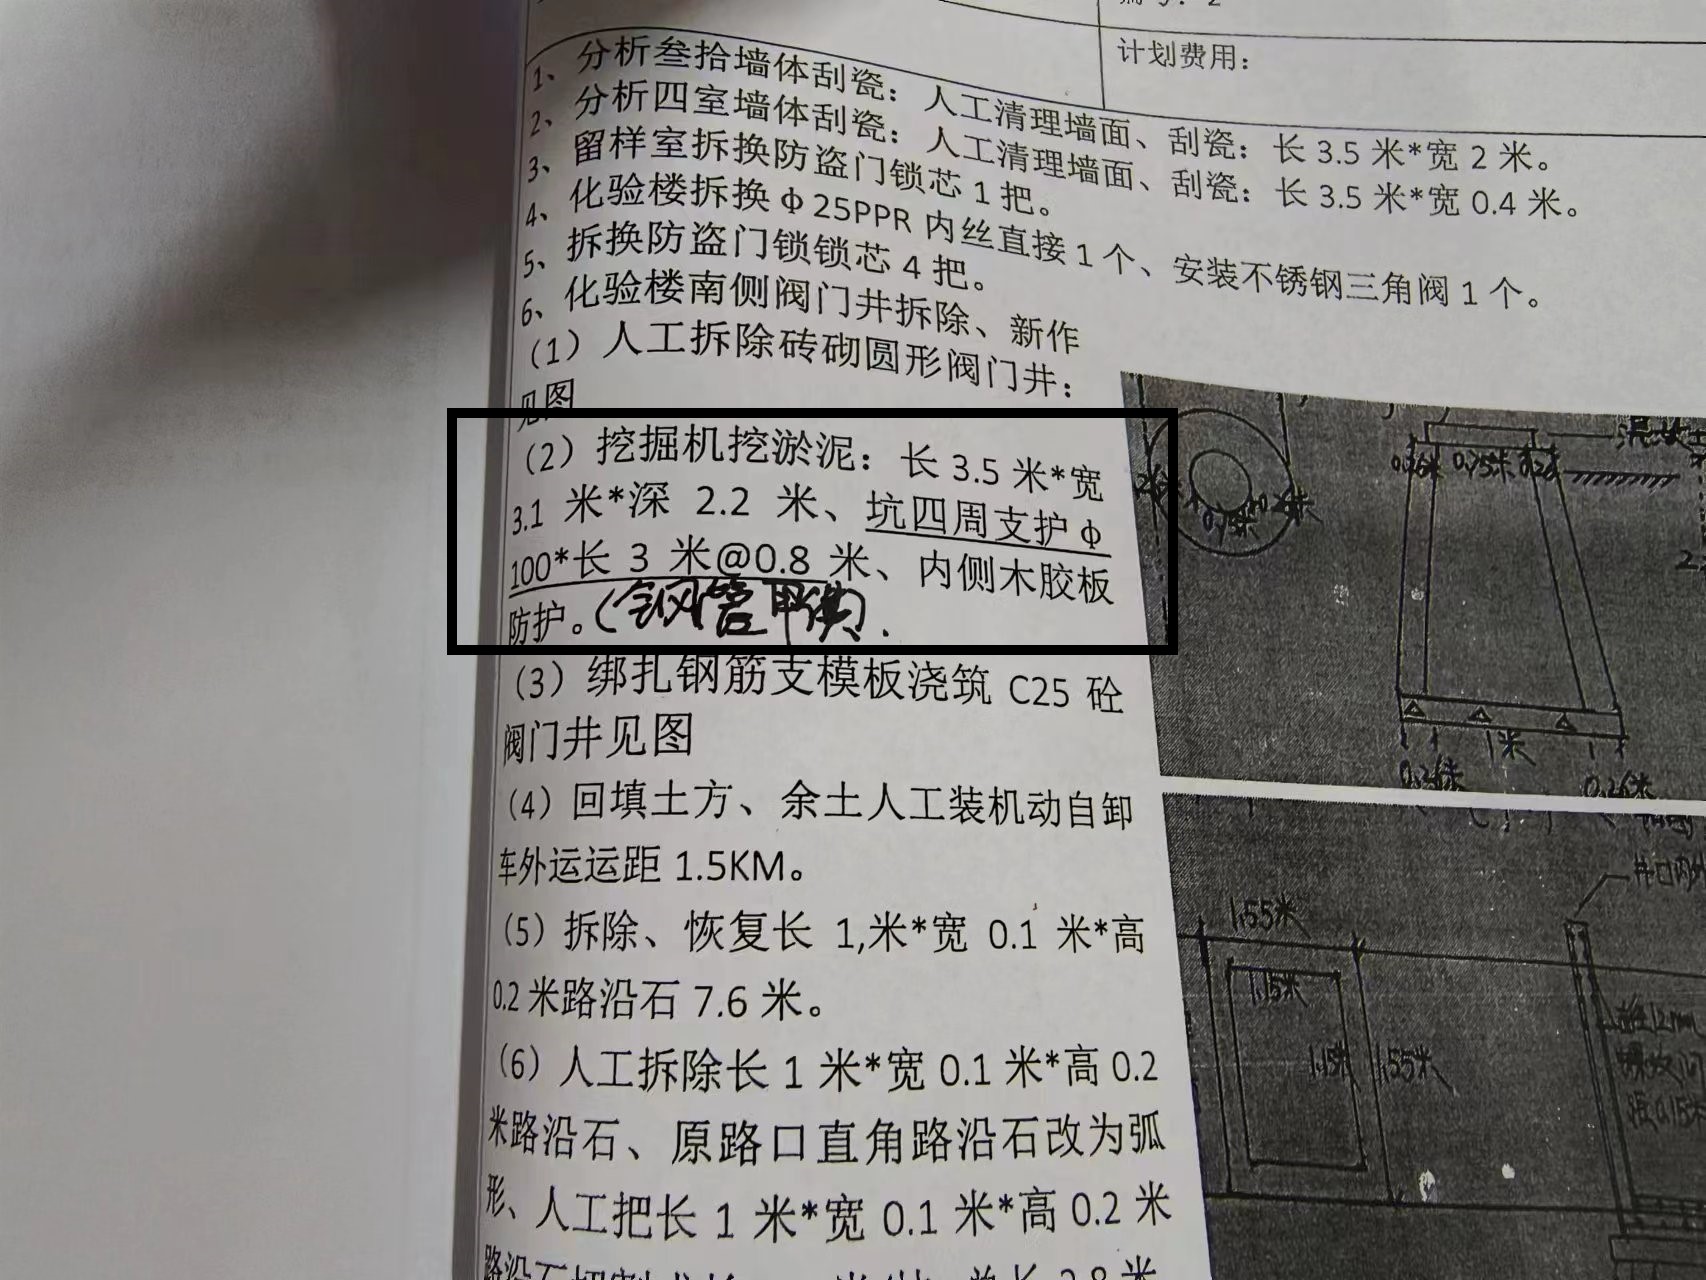 计划费用：
1、分析叁拾墙体刮瓷：人工清理墙面、刮瓷：长 3.5 米*宽 2 米。
2、分析四室墙体刮瓷：人工清理墙面、刮瓷：长 3.5 米*宽 0.4 米。
3、留样室拆换防盗门锁芯 1 把。
4、化验楼拆换φ25PPR 内丝直接 1 个、安装不锈钢三角阀 1 个。
5、拆换防盗门锁锁芯 4 把。
6、化验楼南侧阀门井拆除、新作
（1）人工拆除砖砌圆形阀门井：
见图
（2）挖掘机挖淤泥：长 3.5 米*宽
3.1 米*深 2.2 米、坑四周支护φ
100*长 3 米@0.8 米、内侧木胶板
防护。（钢管甲供）.
（3）绑扎钢筋支模板浇筑 C25 砼
阀门井见图
（4）回填土方、余土人工装机动自卸
车外运运距 1.5KM。
（5）拆除、恢复长 1,米*宽 0.1 米*高
0.2 米路沿石 7.6 米。
（6）人工拆除长 1 米*宽 0.1 米*高 0.2
米路沿石、原路口直角路沿石改为弧
形、人工把长 1 米*宽 0.1 米*高 0.2 米
0.26米 0.75米 0.26
1米
0.26米 0.26米
1.55米
1.15米
1.55米